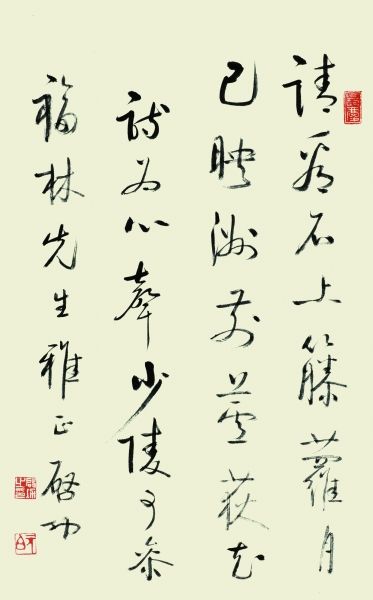 請看石上籐蘿月
已映洲前蘆荻花
詩為心聲少陵可參
福林先生雅正 啟功